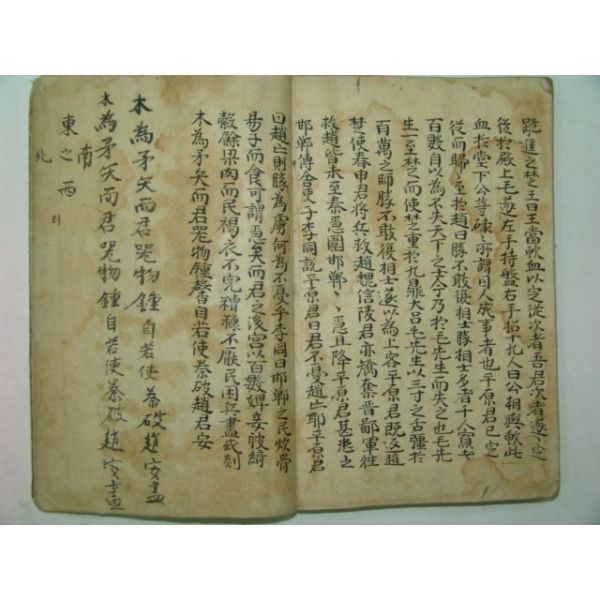 跪進之楚王曰王當歃血以定從次者吾君次者遂〻定
從於殿上毛遂左手持盤右手招十九人曰公相與歃此
血於堂下公等碌〻所謂因人成事者也平原君已定
從而歸〻至於趙曰勝不敢復相士勝相士多者千人寡者
百數自以為不失天下之士今乃於毛先生而失之也毛先
生一至楚而使趙重於九鼎大呂毛先生以三寸之舌彊於
百萬之師勝不敢復相士遂以為上客平原君既返趙
楚使春申君將兵救趙魏信陵君亦矯奪晉鄙軍往
救趙皆未至秦急圍邯鄲〻〻急且降平原君甚患之
邯鄲傳舍吏子李同說平原君曰君不憂趙亡耶平原君
曰趙亡則勝為虜何為不憂乎李同曰邯鄲之民炊骨
易子而食可謂急矣而君之後宮以百數婢妾被綺
穀餘梁肉而民褐衣不完糟糠不厭民困兵盡或剡
木為矛矢而君器物鍾磬自若使秦破趙君安
木為矛矢而君器物鍾自若使秦破趙安盡
木為矛矢而君器物鍾自若使秦破趙安盡
南
東之西
北